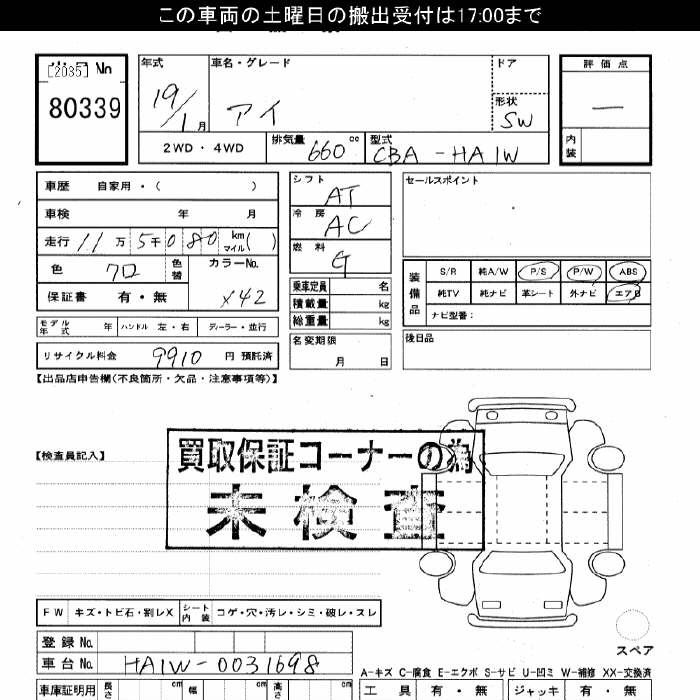 この車両の土曜日の搬出受付は17:00まで
[2035] No
80339
年式 19/1月
車名・グレード アイ
ドア
形状 SW
評価点 —
内装
2WD・4WD
排気量 660 cc
型式 CBA-HA1W
車歴 自家用・( )
車検 年 月
走行 11万5千080 km マイル( )
色 クロ 色替
カラーNo. X42
保証書 有・無
モデル年式 年 ハンドル 左・右 ディーラー・並行
リサイクル料金 9910 円 預託済
シフト AT
冷房 AC
燃料 G
乗車定員 名
積載量 kg
総重量 kg
名変期限 月 日
セールスポイント
装備品
S/R 純A/W P/S P/W ABS
純TV 純ナビ 革シート 外ナビ エアB
ナビ型番:
後日品
【出品店申告欄(不良箇所・欠品・注意事項等)】
【検査員記入】
買取保証コーナーの為
未検査
FW キズ・トビ石・割レX シート内装 コゲ・穴・汚レ・シミ・破レ・スレ
登録No.
車台No. HA1W-0031698
スペア
A-キズ C-腐食 E-エクボ S-サビ U-凹ミ W-補修 XX-交換済
車庫証明用 長さ cm 幅 cm 高さ cm
工具 有・無 ジャッキ 有・無